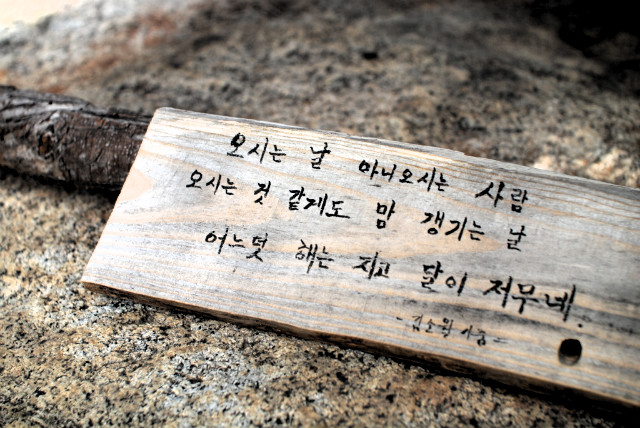 오시는 날 아니오시는 사람
오시는 것 같게도 맘 갱기는 날
어느덧 해는 지고 달이 저무네.